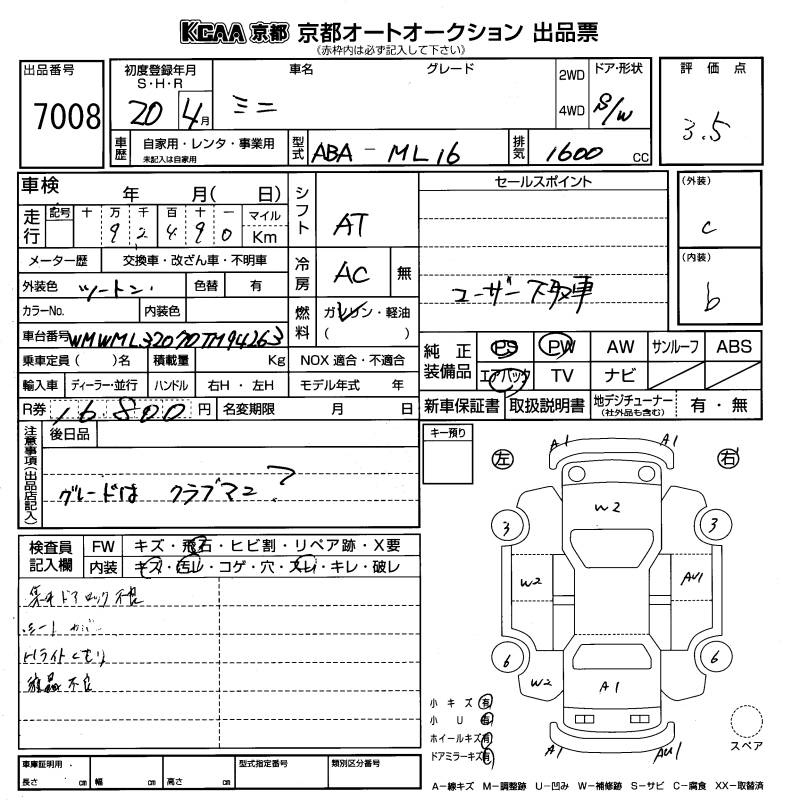 KCAA 京都 京都オートオークション 出品票
(赤枠内は必ず記入して下さい)
出品番号
7008
初度登録年月
S・H・R
20 4月
車名 グレード
ミニ
2WD
4WD
ドア・形状
S/W
評価点
3.5
車歴
自家用・レンタ・事業用
未記入は自家用
型式
ABA-ML16
排気
1600 CC
車検 年 月( 日)
走行
記号 十 万 千 百 十 一
9 2 4 9 0
マイル
Km
メーター歴 交換車・改ざん車・不明車
外装色 ツートン 色替 有
カラーNo. 内装色
車台番号 WMWML32070TM94263
乗車定員( )名 積載量 Kg NOX 適合・不適合
輸入車 ディーラー・並行 ハンドル 右H・左H モデル年式 年
R券 16800 円 名変期限 月 日
シフト AT
冷房 AC 無
燃料 ガソリン・軽油
( )
セールスポイント
ユーザー下取車
(外装)
C
(内装)
b
純正装備品
PS PW AW サンルーフ ABS
エアバック TV ナビ
新車保証書 取扱説明書 地デジチューナー
(社外品も含む)
有・無
注意事項(出品店記入)
後日品
グレードは クラブマン?
キー預り
検査員記入欄
FW キズ・飛石・ヒビ割・リペア跡・X要
内装 キズ・汚レ・コゲ・穴・スレ・キレ・破レ
集中ドアロック不良
Hライトくもり
不良
左 右
A1 A1
W2
3 3
W2 AU1
6 6
W2 A1
A1 AU1
小キズ 有
小U 有
ホイールキズ 有
ドアミラーキズ 有
スペア
車庫証明用 型式指定番号 類別区分番号
長さ cm 幅 cm 高さ cm
A-線キズ M-調整跡 U-凹み W-補修跡 S-サビ C-腐食 XX-取替済